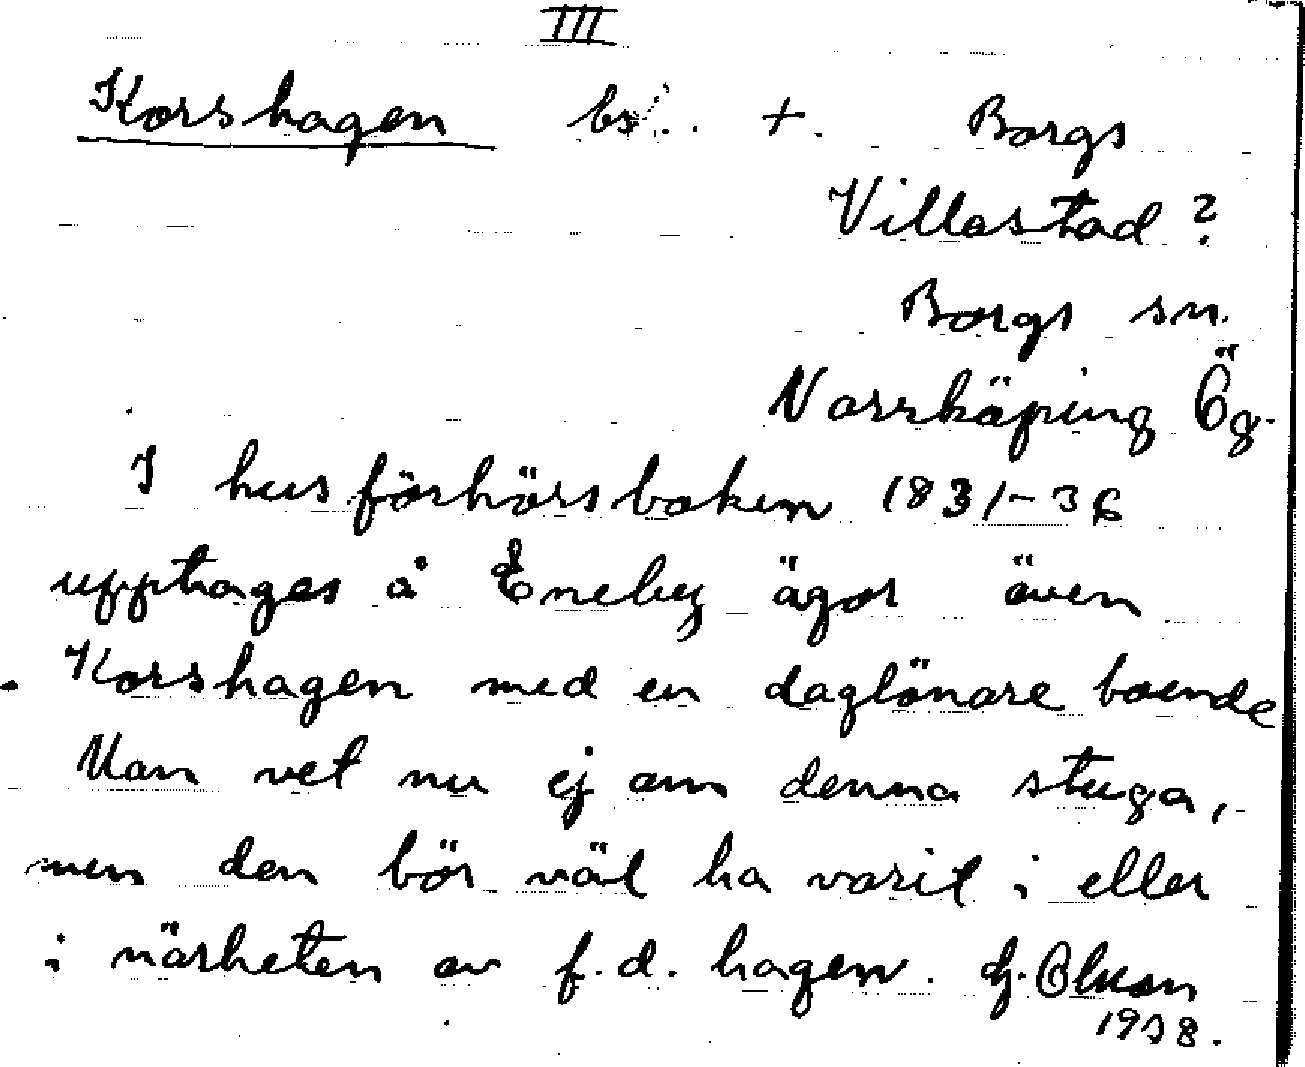 III
Korshagen bs. +. Borgs
Villastad?
Borgs sn.
Norrköping Ög.
I husförhörsboken 1831-36
upptages å Eneby ägor även
Korshagen med en daglönare boende
Man vet nu ej om denna stuga,
men den bör väl ha varit i eller
i närheten av f.d. hagen. Hj. Olsson
1938.